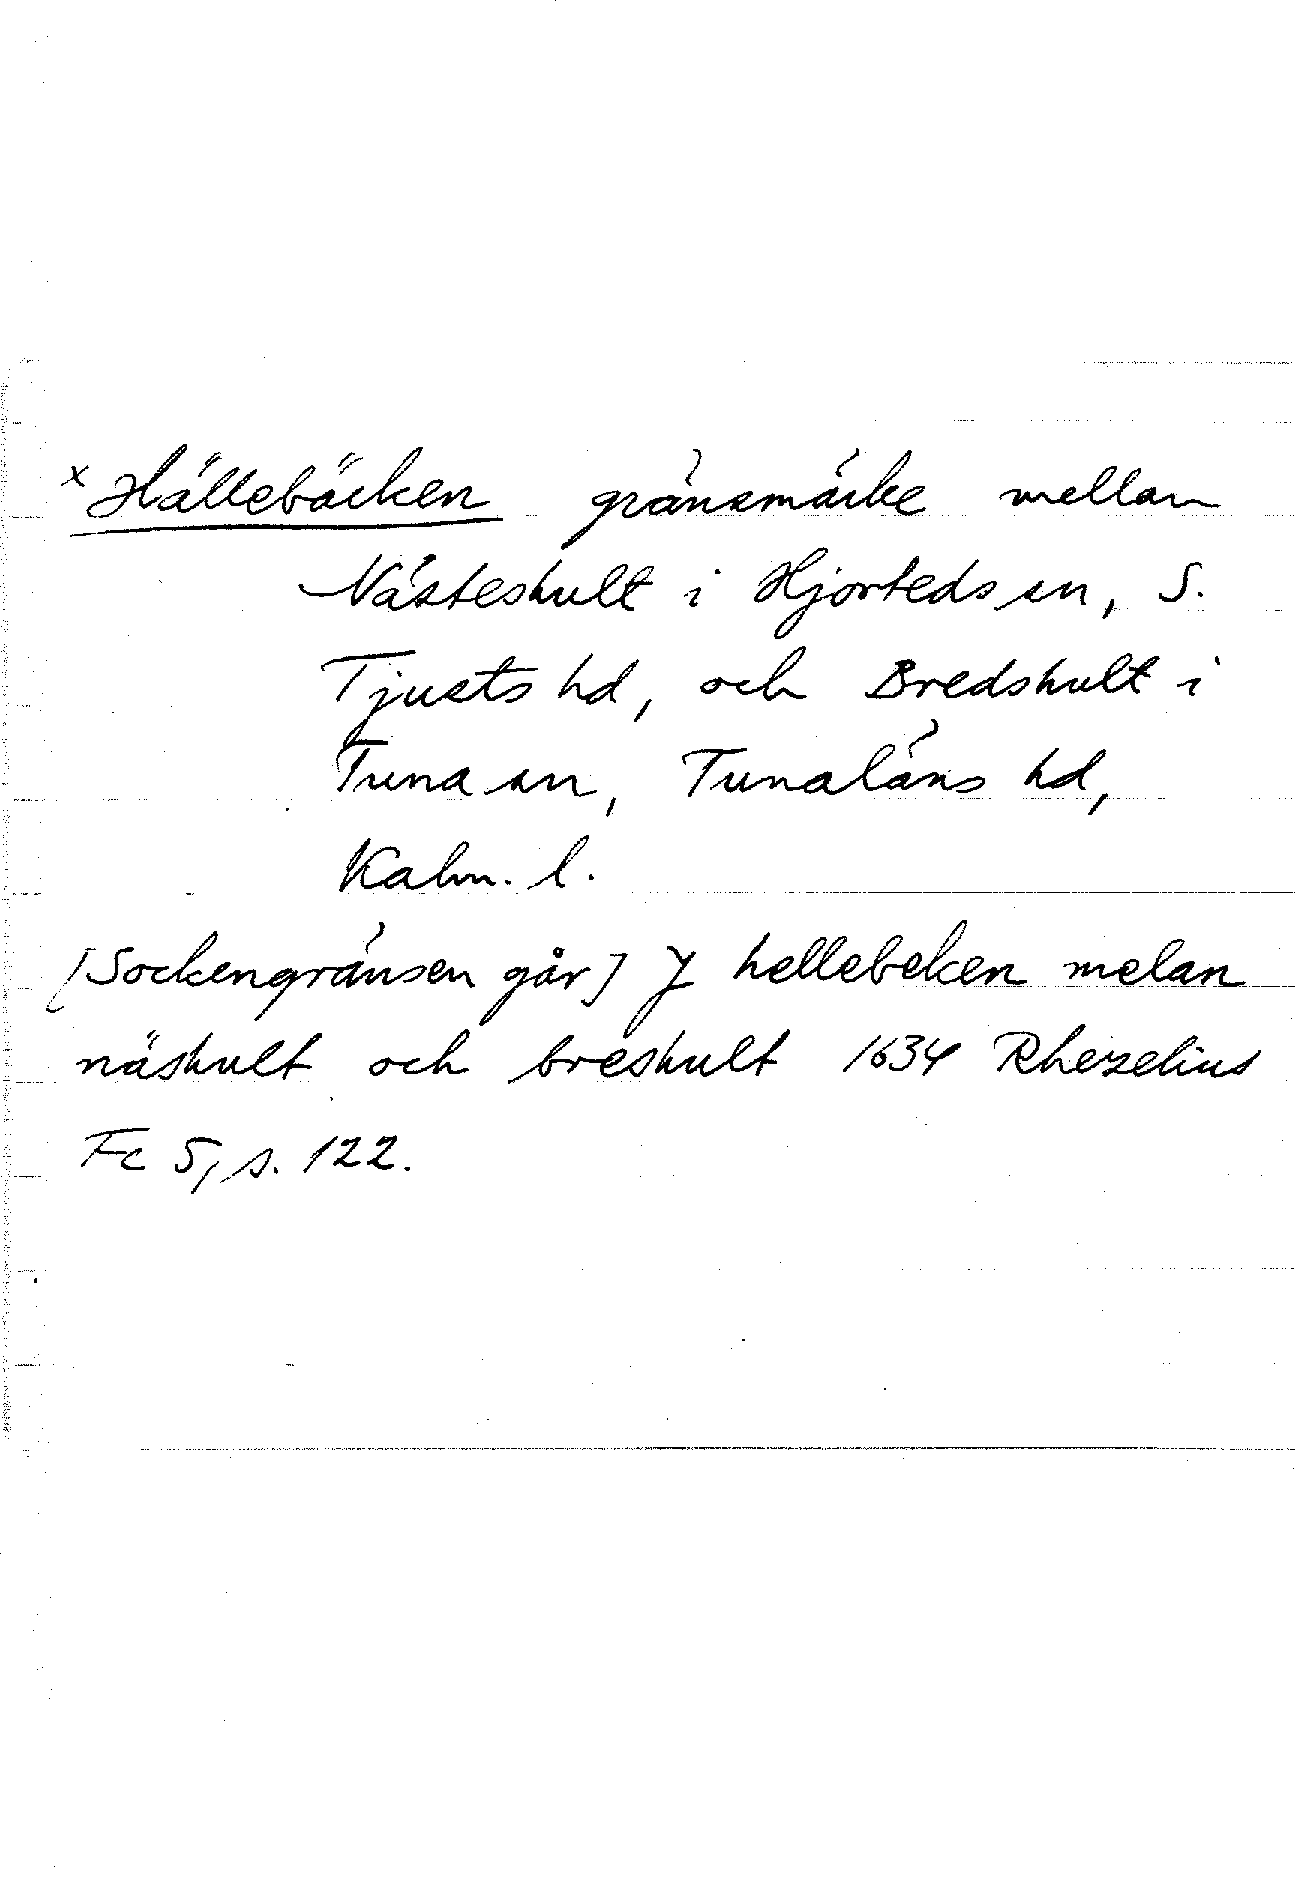 x Hällebäcken gränsmärke mellan
Västeshult i Hjorteds sn, S.
Tjusts hd, och Bredshult i
Tuna sn, Tunaläns hd,
Kalm. l.
[Sockengränsen går] J hellebeken melan
näshult och breshult 1634 Rhezelius
Fc 5, s. 122.